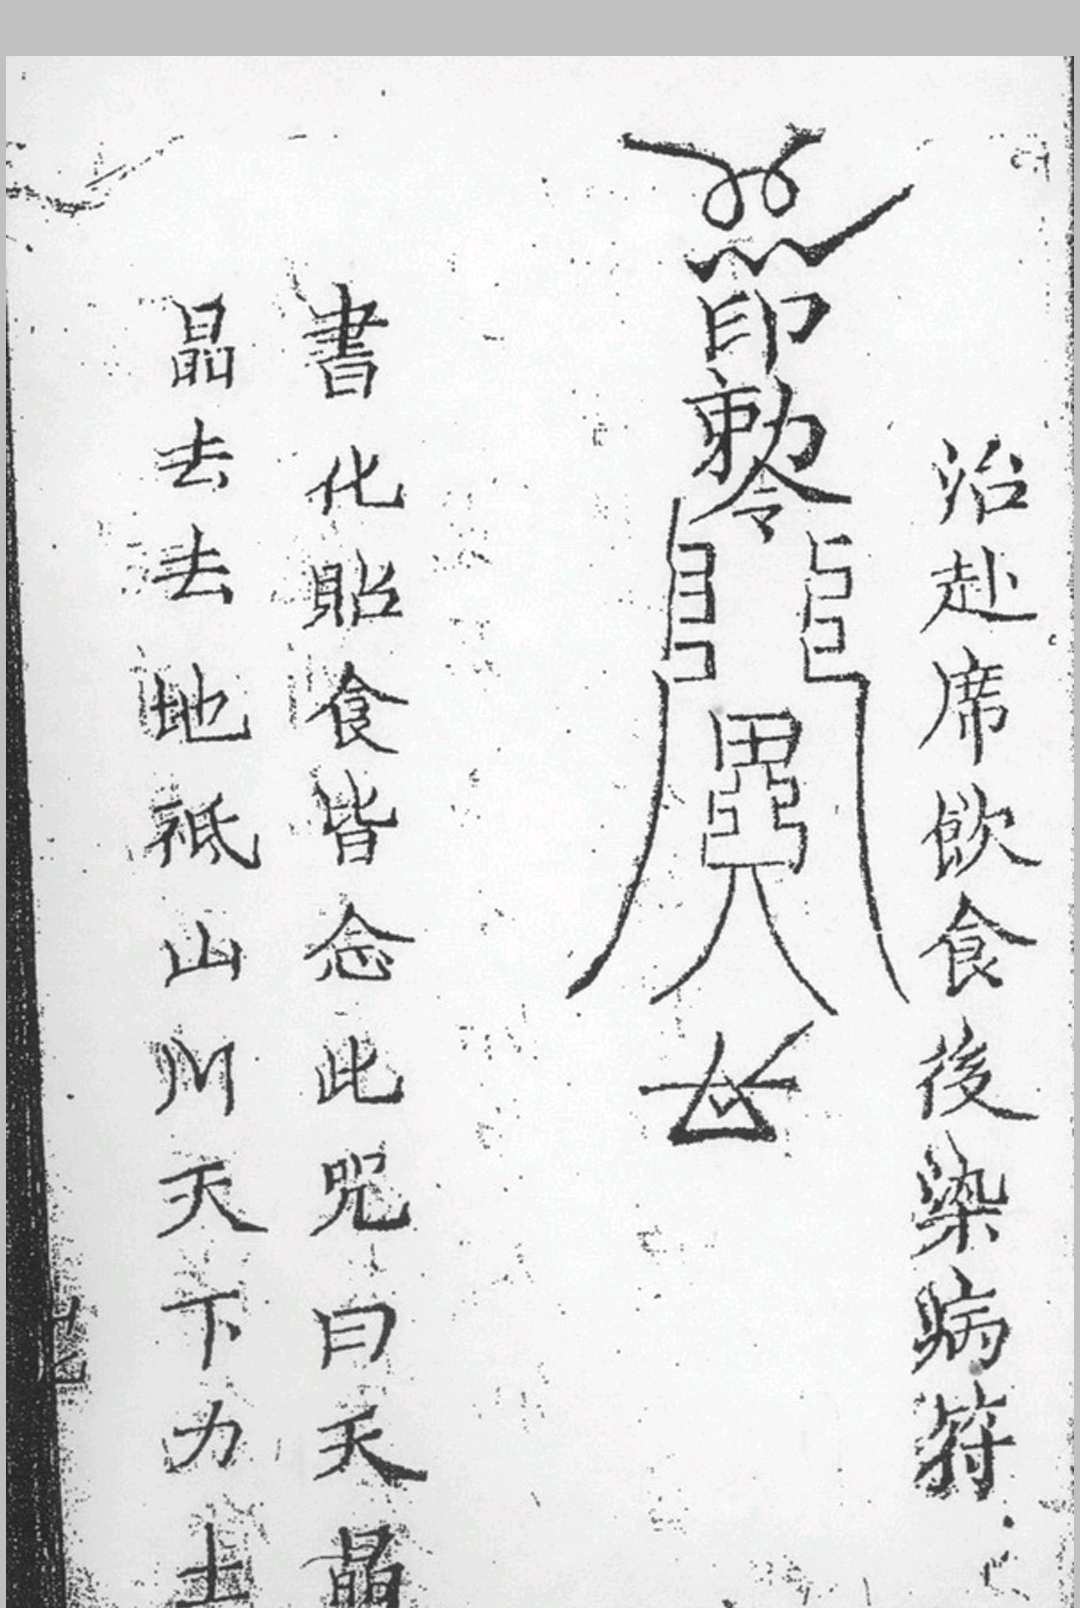 治赴席飲食後染病符
印勅令
書化貼食皆念此咒曰天晶
晶去去地祗山川天下力士